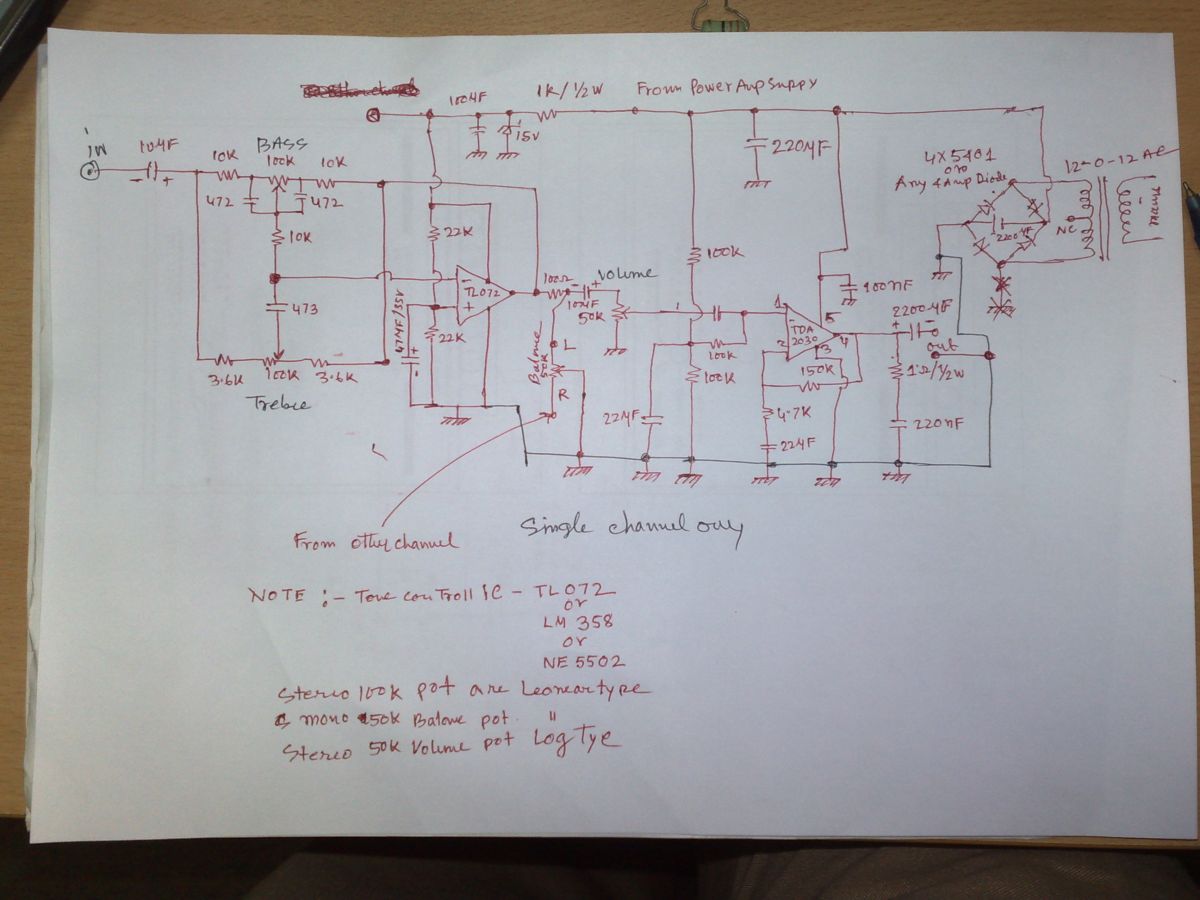 100µF
1K/½W
From Power Amp Supply
15V
iN
10µF
BASS
10K
100K
10K
472
472
220µF
4X5401
or
Any 4 Amp Diode
12-0-12 AC
2200µF
NC
10K
22K
100K
100nF
TL072
100Ω
Volume
10µF
50K
473
47µF/35V
22K
Balance
50K
L
R
1
TDA
2030
5
4
2
3
2200µF
out
100K
100K
150K
1Ω/½W
3.6K
100K
3.6K
Treble
22µF
4.7K
22µF
220nF
From other channel
Single channel only
NOTE :- Tone controll iC - TL072
or
LM 358
or
NE 5502
Stereo 100K pot are Leonear type
mono 50K Balance pot. "
Stereo 50K Volume pot Log Tye